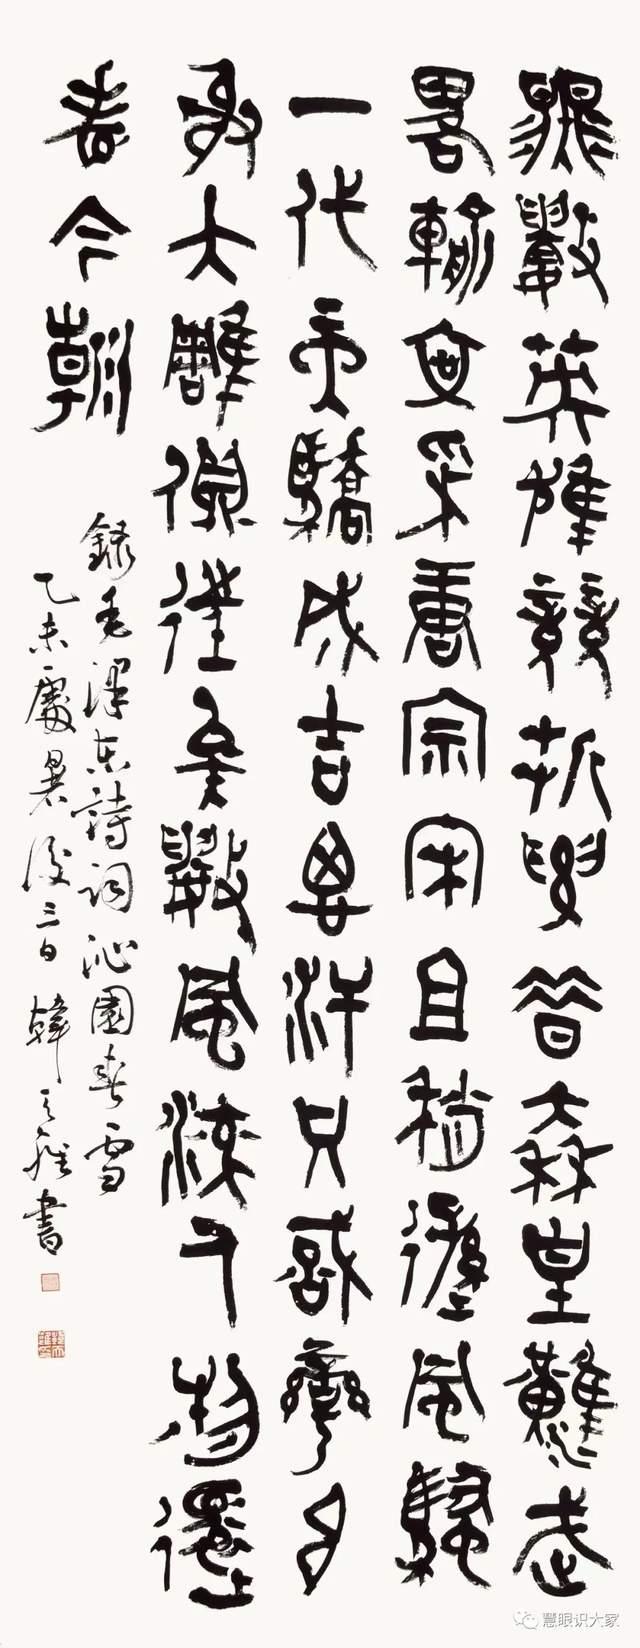 無數英雄競折腰昔秦皇漢武
畧輸文采唐宗宋且稍遜風騷
一代天驕成吉思汗只識彎弓
射大雕俱往矣數風流人物還
看今朝
錄毛澤東詩詞沁園春雪
乙未處暑後三日韓天雍書
慧眼识大家